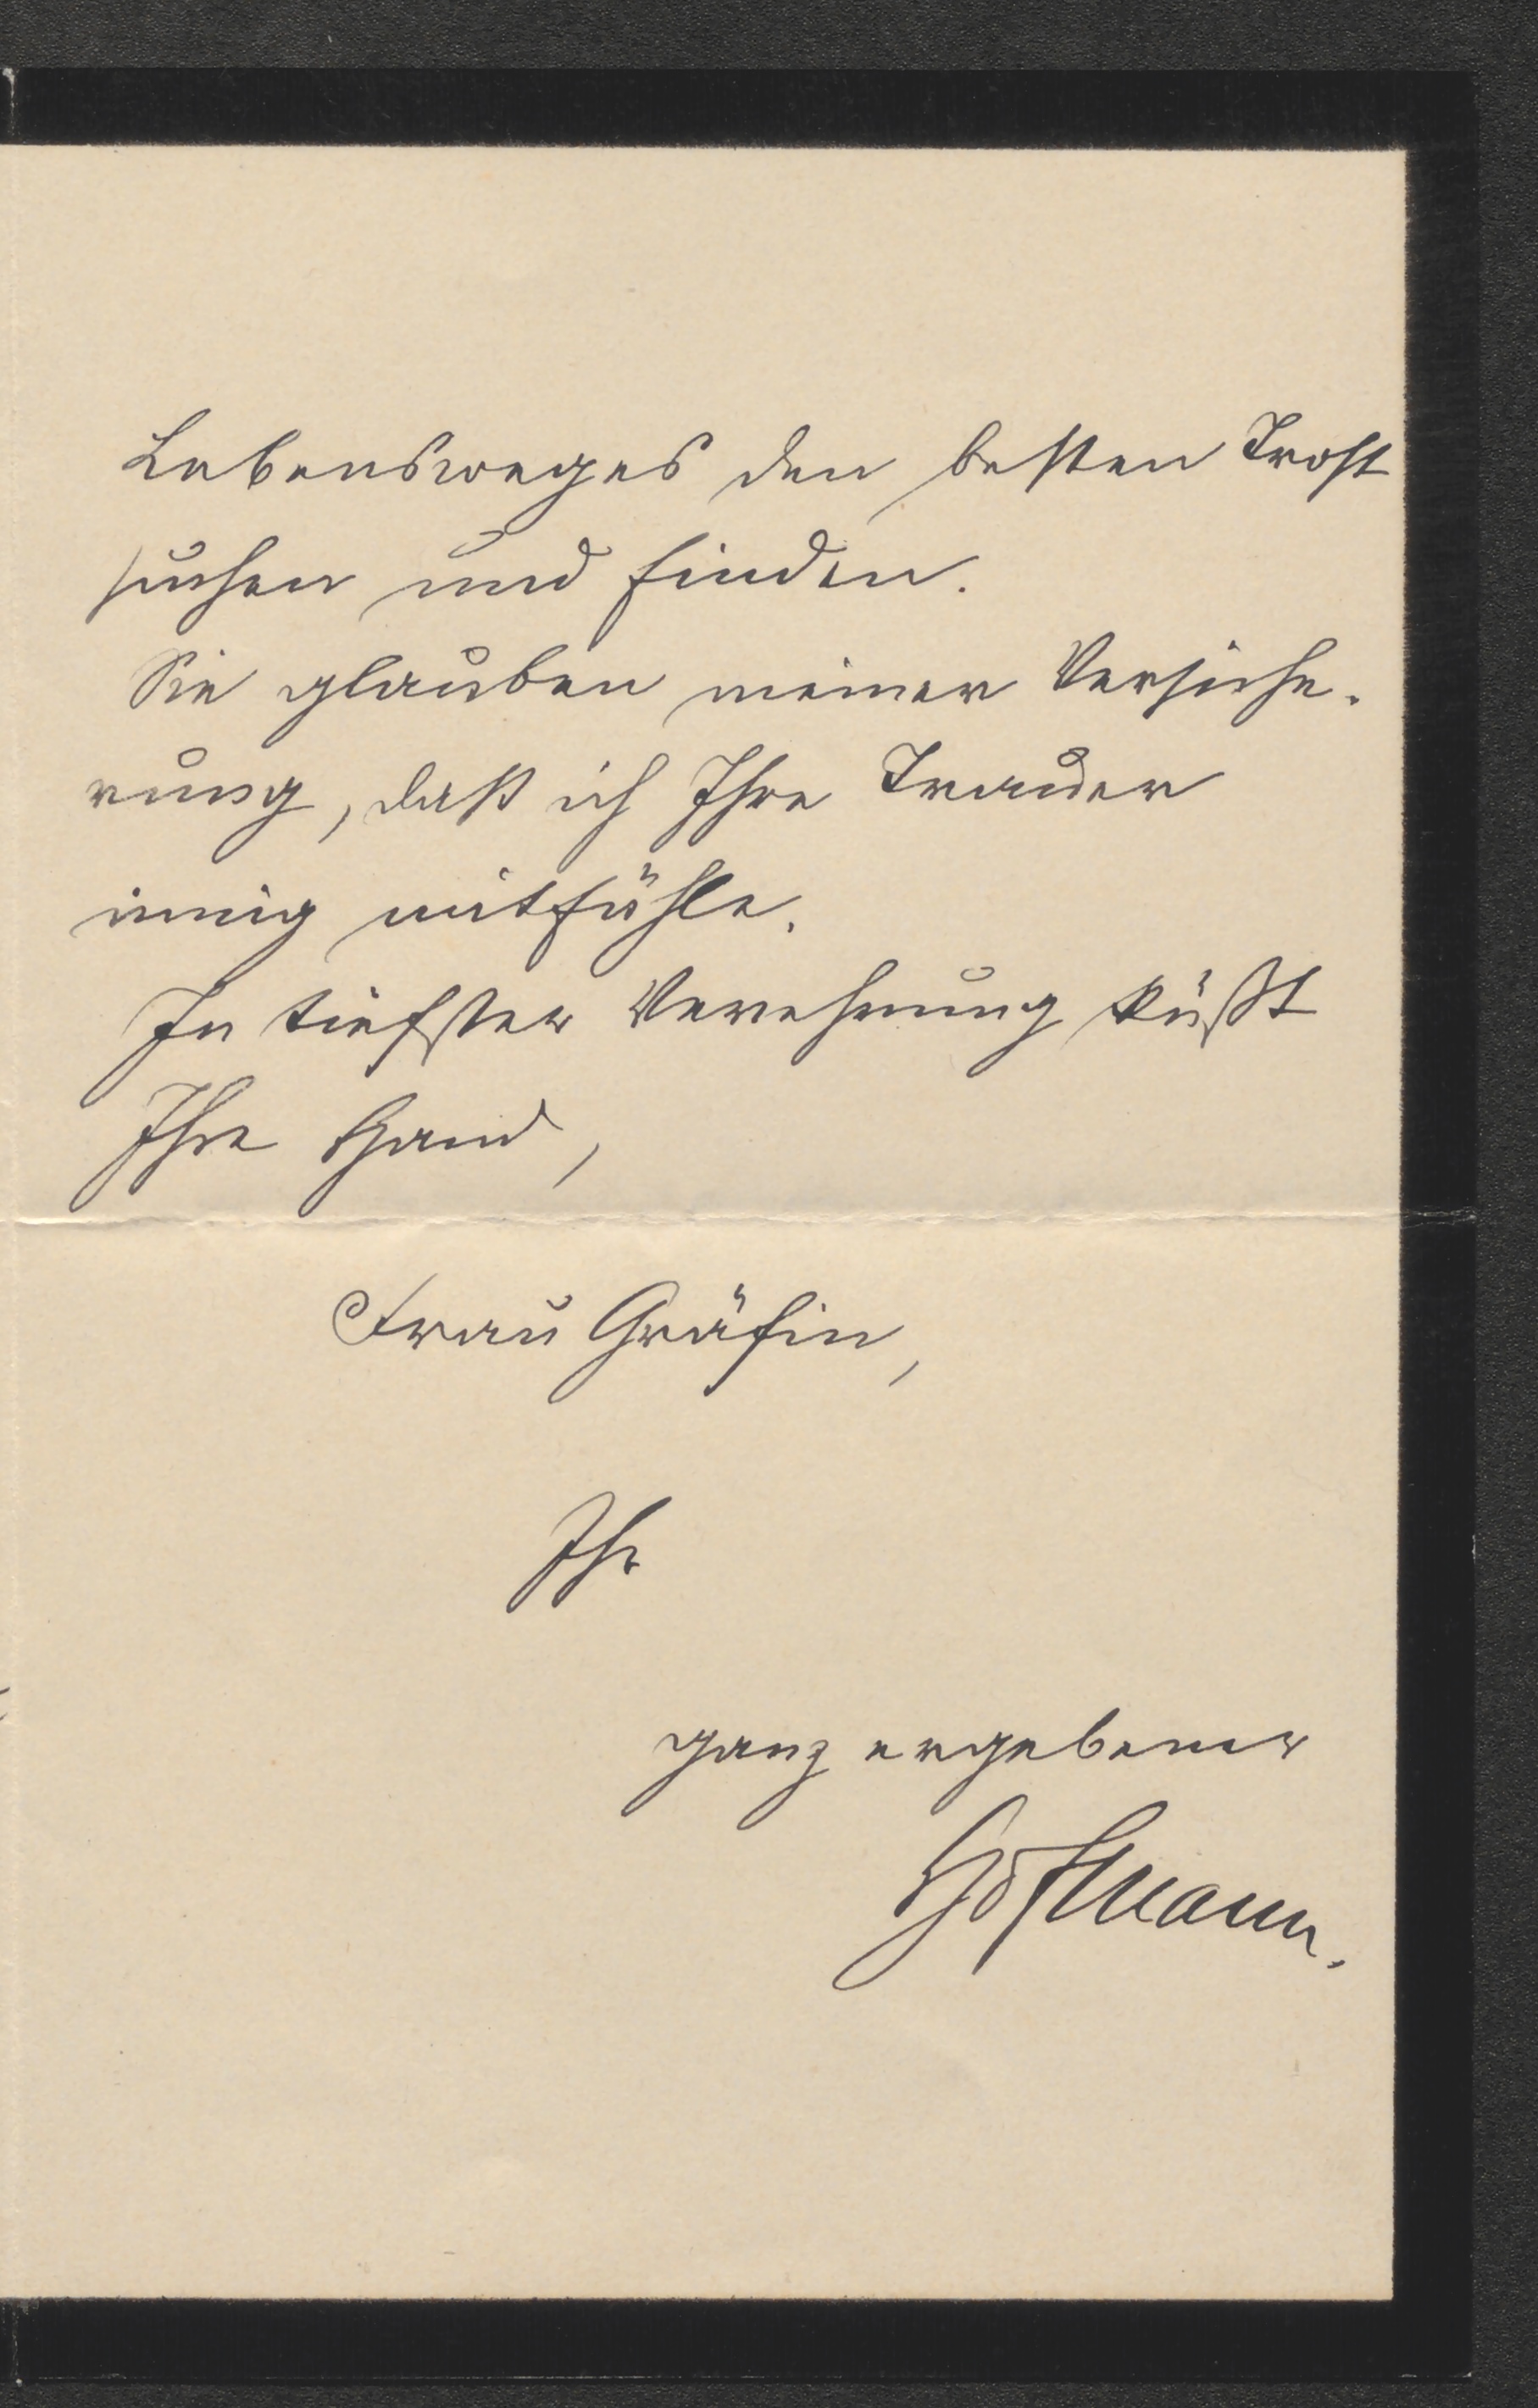 Lebensweges den besten Trost
suchen und finden.
Sie glauben meiner Versiche-
rung, daß ich Ihre Trauer
innig mitfühle.
In tiefster Verehrung küßt
Ihre Hand,
Frau Gräfin,
Ihr
ganz ergebener
Hofmann.